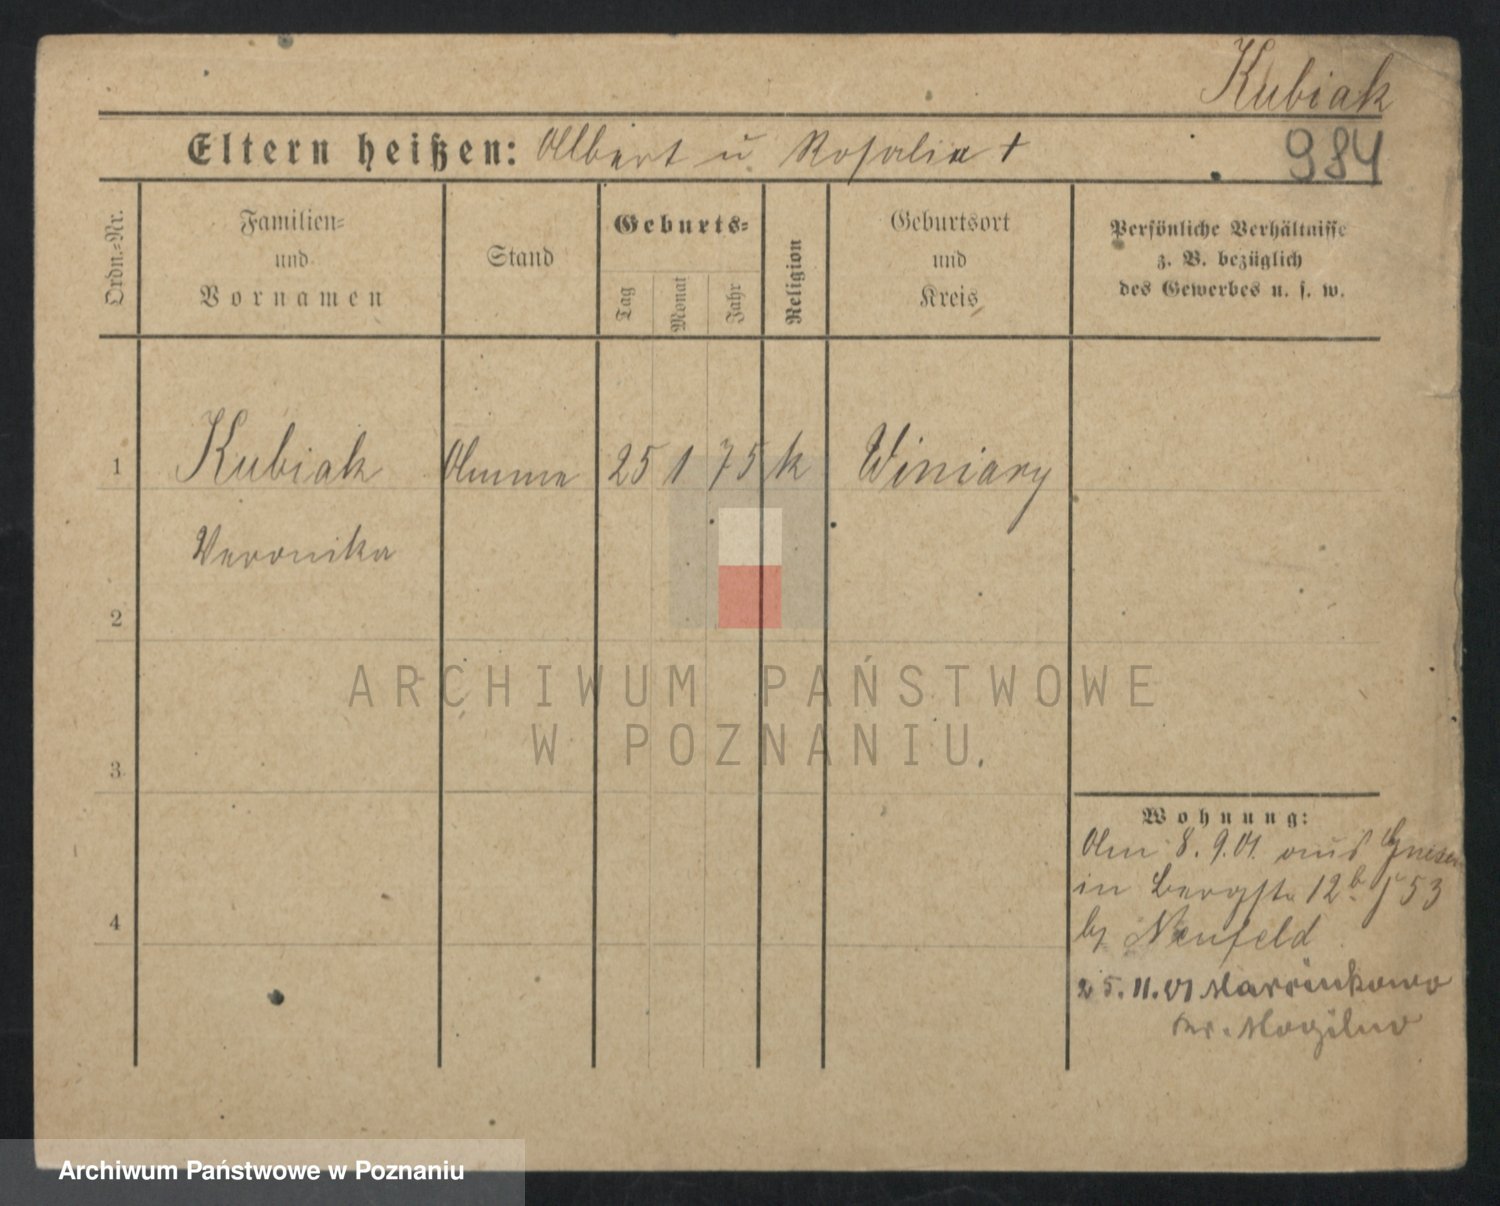 Kubiak
Eltern heißen: Albert u Rosalia +
984
Ordn.=Nr.
Familien=
und
Vornamen
Stand
Geburts=
Tag
Monat
Jahr
Religion
Geburtsort
und
Kreis
Persönliche Verhältnisse
z. B. bezüglich
des Gewerbes u. s. w.
1 Kubiak Amme 25 1 75 k Winiary
Veronika
2
3
4
ARCHIWUM PAŃSTWOWE
W POZNANIU
Wohnung:
Am 8.9.01. aus Gnesen
in Bergstr 12b 53
by Neufeld
25.11.01 Marcinkowo
Kr. Mogilno
Archiwum Państwowe w Poznaniu